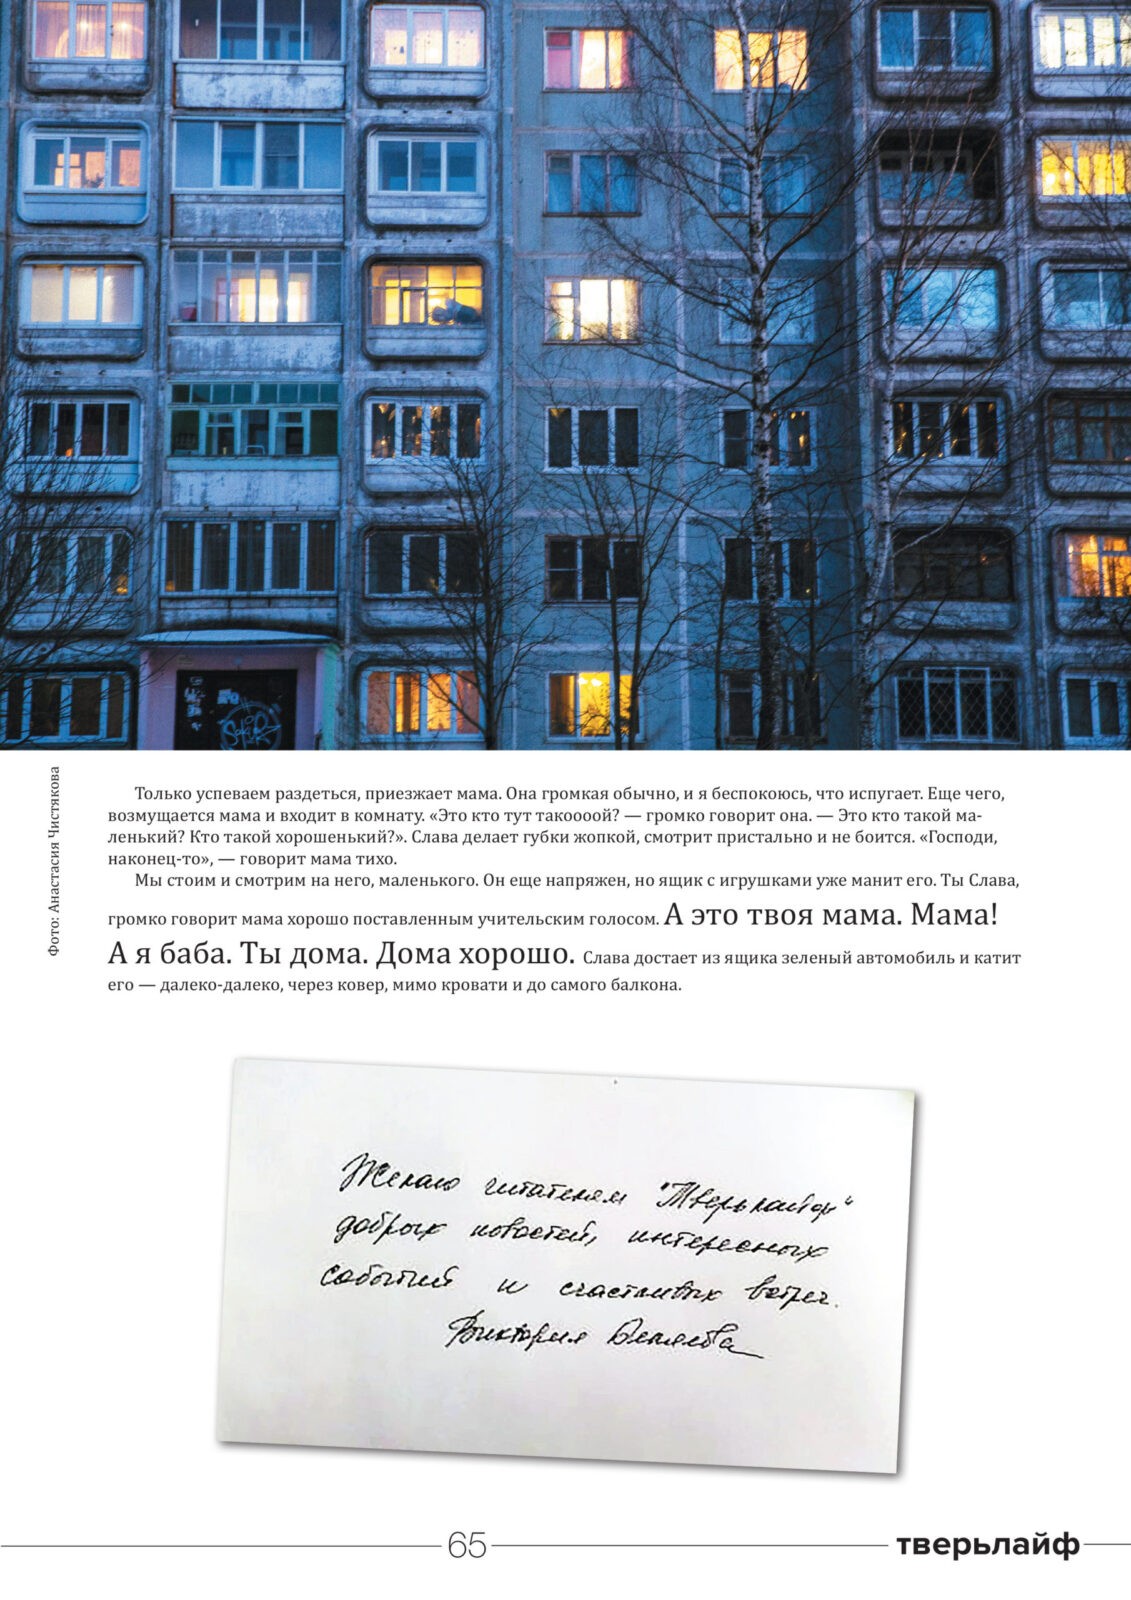 Фото: Анастасия Чистякова
Только успеваем раздеться, приезжает мама. Она громкая обычно, и я беспокоюсь, что испугает. Еще чего,
возмущается мама и входит в комнату. «Это кто тут такоооой? — громко говорит она. — Это кто такой ма-
ленький? Кто такой хорошенький?». Слава делает губки жопкой, смотрит пристально и не боится. «Господи,
наконец-то», — говорит мама тихо.
Мы стоим и смотрим на него, маленького. Он еще напряжен, но ящик с игрушками уже манит его. Ты Слава,
громко говорит мама хорошо поставленным учительским голосом. А это твоя мама. Мама!
А я баба. Ты дома. Дома хорошо. Слава достает из ящика зеленый автомобиль и катит
его — далеко-далеко, через ковер, мимо кровати и до самого балкона.
Желаю читателям "Тверьлайф"
добрых новостей, интересных
событий и счастливых встреч.
Виктория
65
тверьлайф